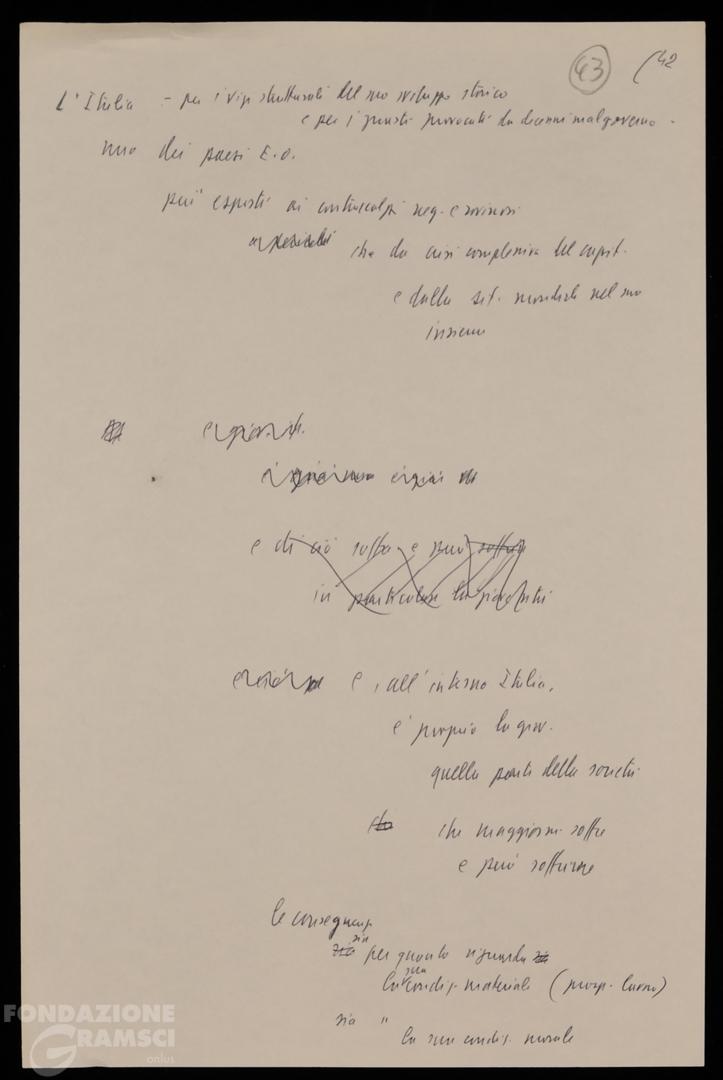 43 (42
L'Italia - per i vizi strutturali del suo sviluppo storico
e per i guasti provocati da decenni malgoverno -
uno dei paesi E.O.
più esposti ai contraccolpi neg. e rovinosi
che da crisi complessiva del capit.
e dalla sit. mondiale nel suo
insieme
e di ciò soffre e può soffrire
in particolare la gioventù
E, all'interno Italia,
è proprio la giov.
quella parte della società
che
che maggiorm. soffre
e può soffrirne
le conseguenze
sia
sia per quanto riguarda
la sua condiz. materiale (prosp. lavoro)
sia "
la sua condiz. morale
FONDAZIONE
GRAMSCI
onlus